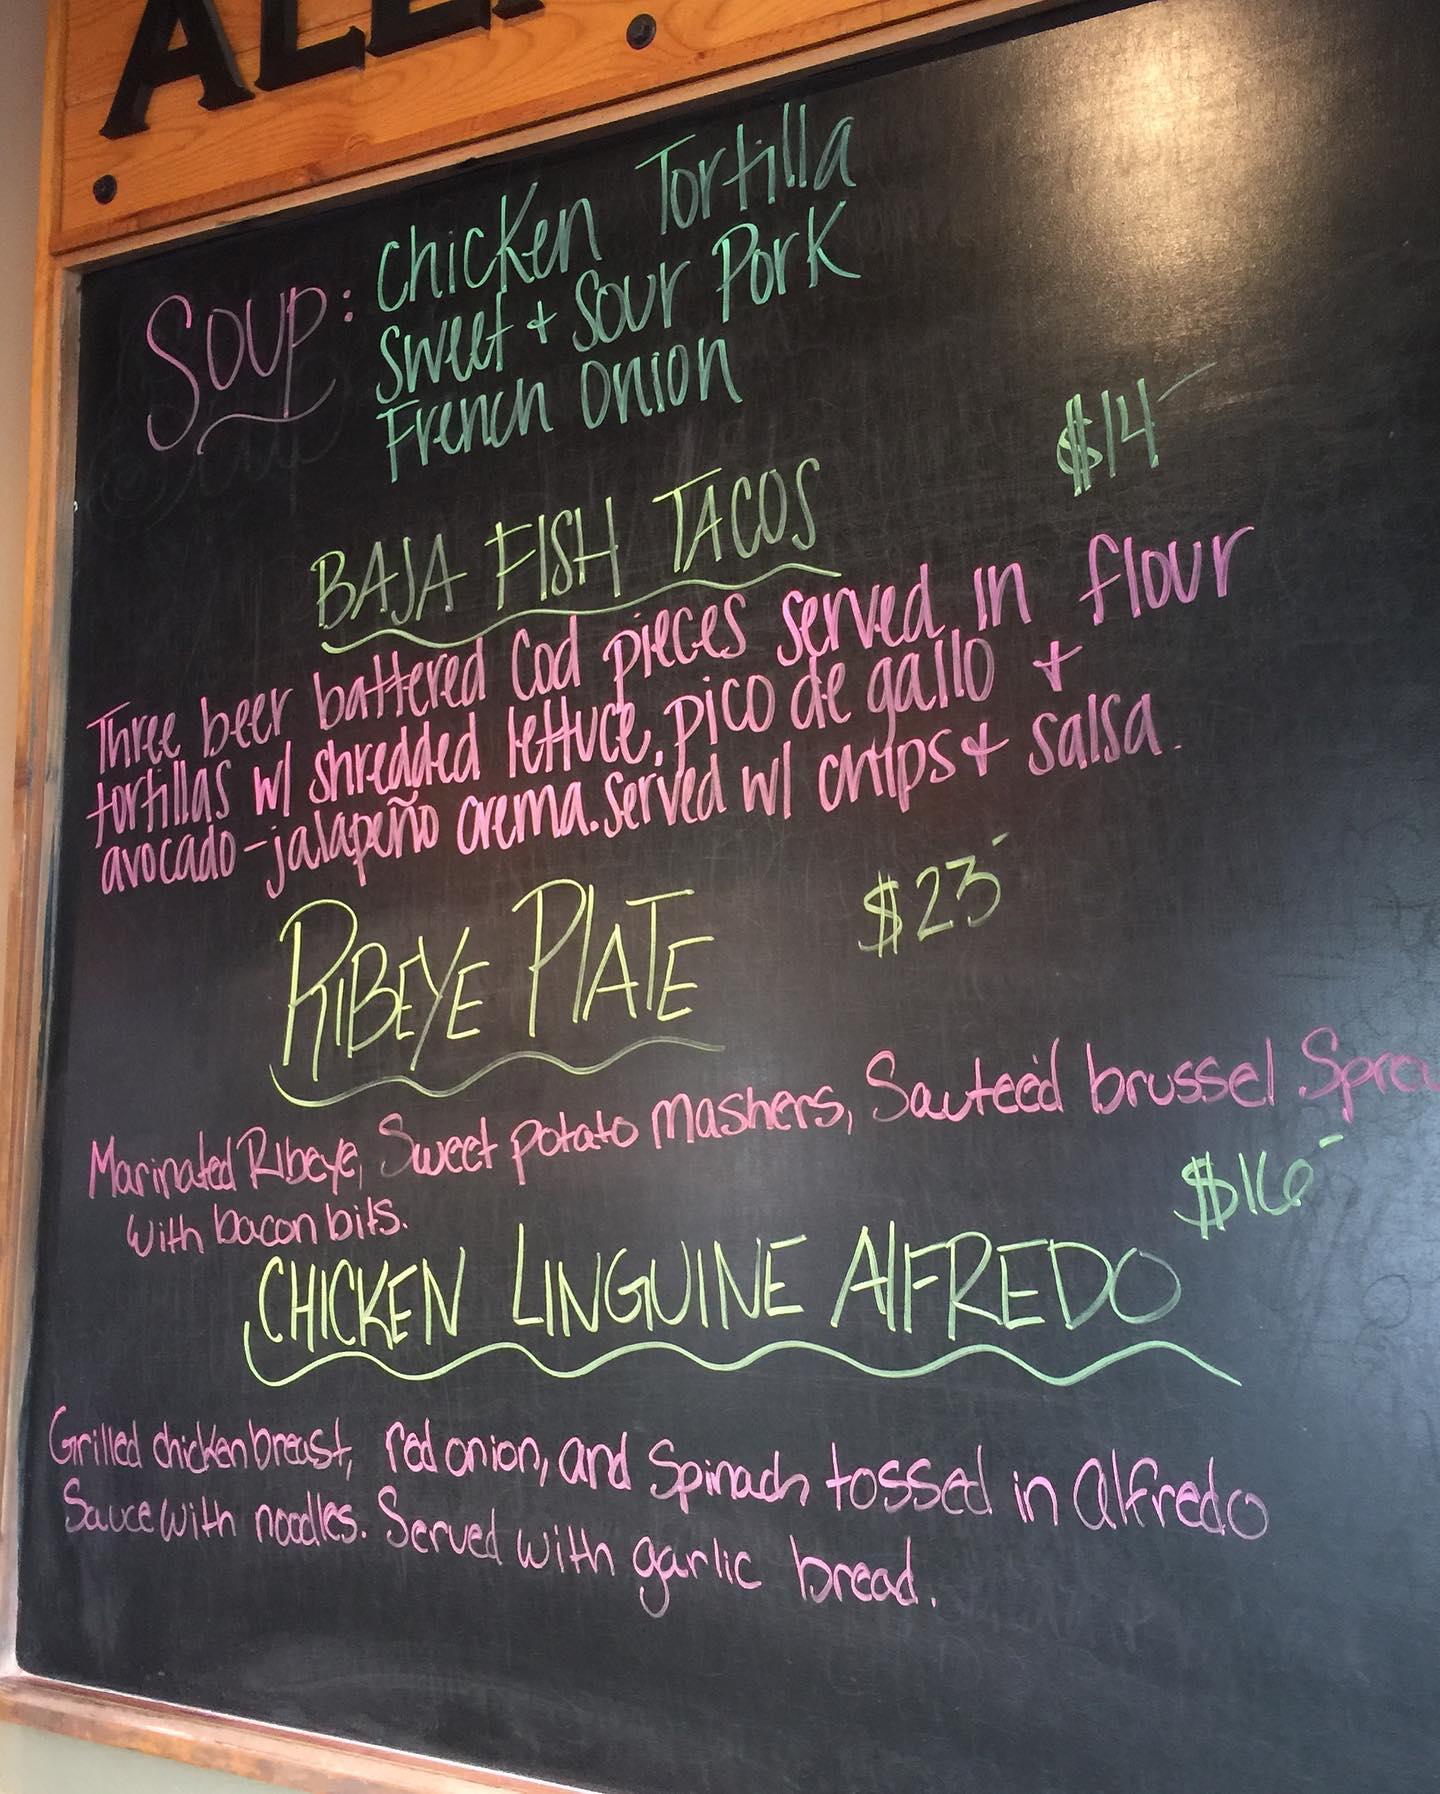 Soup: Chicken Tortilla
Sweet + Sour Pork
French Onion
$14
BAJA FISH TACOS
Three beer battered Cod pieces served in flour
tortillas w/ shredded lettuce, pico de gallo +
avocado-jalapeño crema. Served w/ chips + salsa.
RIBEYE PLATE $23
Marinated Ribeye, Sweet potato mashers, Sauteéd brussel
with bacon bits.
$16
CHICKEN LINGUINE ALFREDO
Grilled chicken breast, red onion, and Spinach tossed in alfredo
Sauce with noodles. Served with garlic bread.